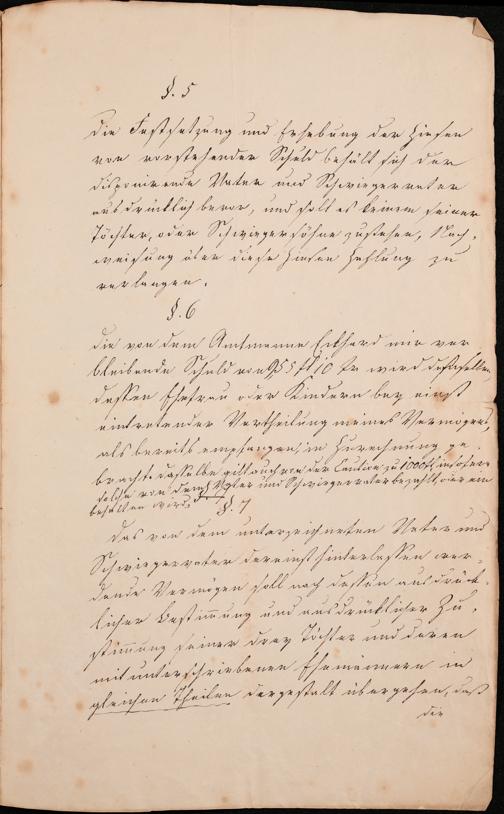 §. 5
Die Festsetzung und Erhebung der Zinsen
von vorstehender Schuld behält sich der
disponirende Vater und Schwiegervater
ausdrücklich bevor, und soll es keinem seiner
Töchter, oder Schwiegersöhne zustehen, Nach-
weisung über diese Zinsen Zahlung zu
verlangen.
§. 6
die von dem Amtmann Eckhard mir ver
bleibende Schuld von 955 fl 10 Xr wird
dessen Ehefrau oder Kindern bey einst
eintretender Vertheilung meines Vermögens,
als bereits empfangen, in Zurechnung ge-
bracht. dasselbe gilt auch von der Caution zu 1000 fl, insofern
solche von dem Vater und Schwiegervater bezahlt, oder ein
behalten wird.
§. 7
Das von dem unterzeichneten Vater und
Schwiegervater dereinst hinterlassen wer-
dende Vermögen soll nach dessen ausdrück-
licher Bestimmung und ausdrücklicher Zu-
stimmung seiner drey Töchter und deren
mitunterschriebenen Ehemännern in
gleichen Theilen dergestalt übergehen, daß
die